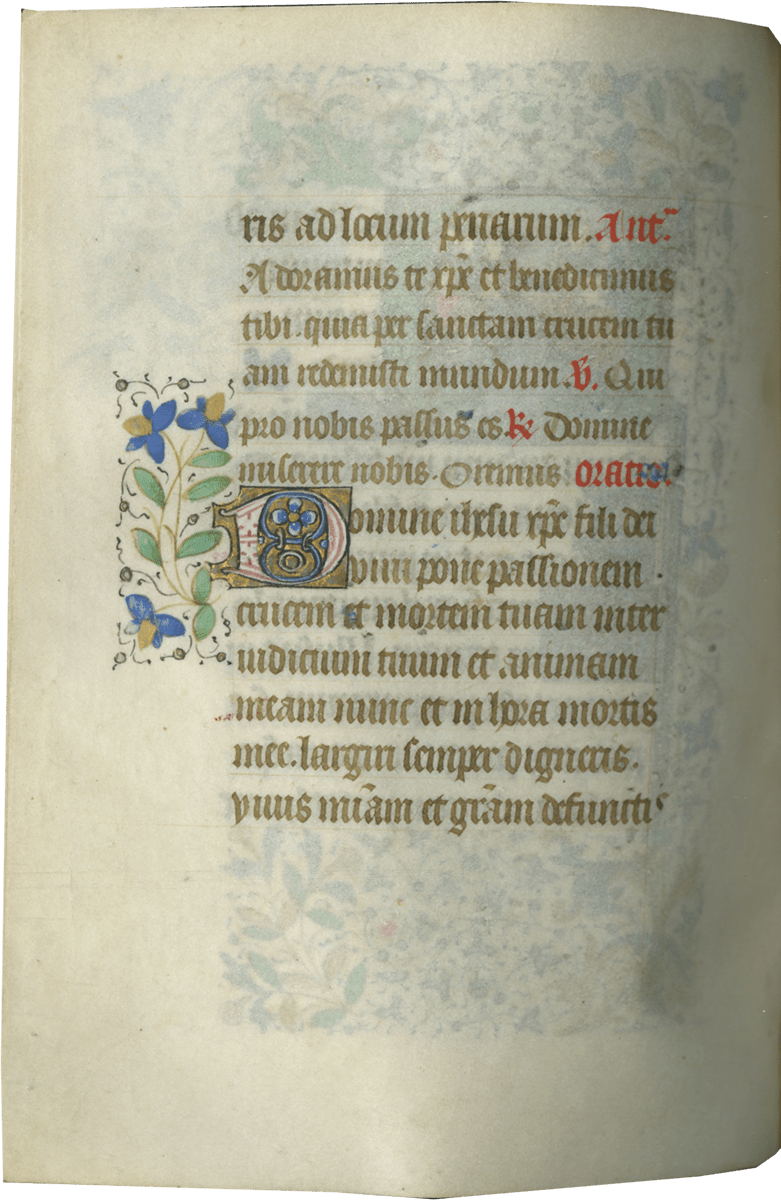 ris ad locum penarum. Ant.
Adoramus te xp̄e et benedicimus
tibi. quia per sanctam crucem tu
am redemisti mundum. V̸. Qui
pro nobis passus es R̸ Domine
miserere nobis. Oremus oratio.
Domine ihesu xp̄e fili dei
viui pone passionem
crucem et mortem tuam inter
iudicium tuum et animam
meam nunc et in hora mortis
mee. largiri semper digneris.
viuis mīam et grām defunctis